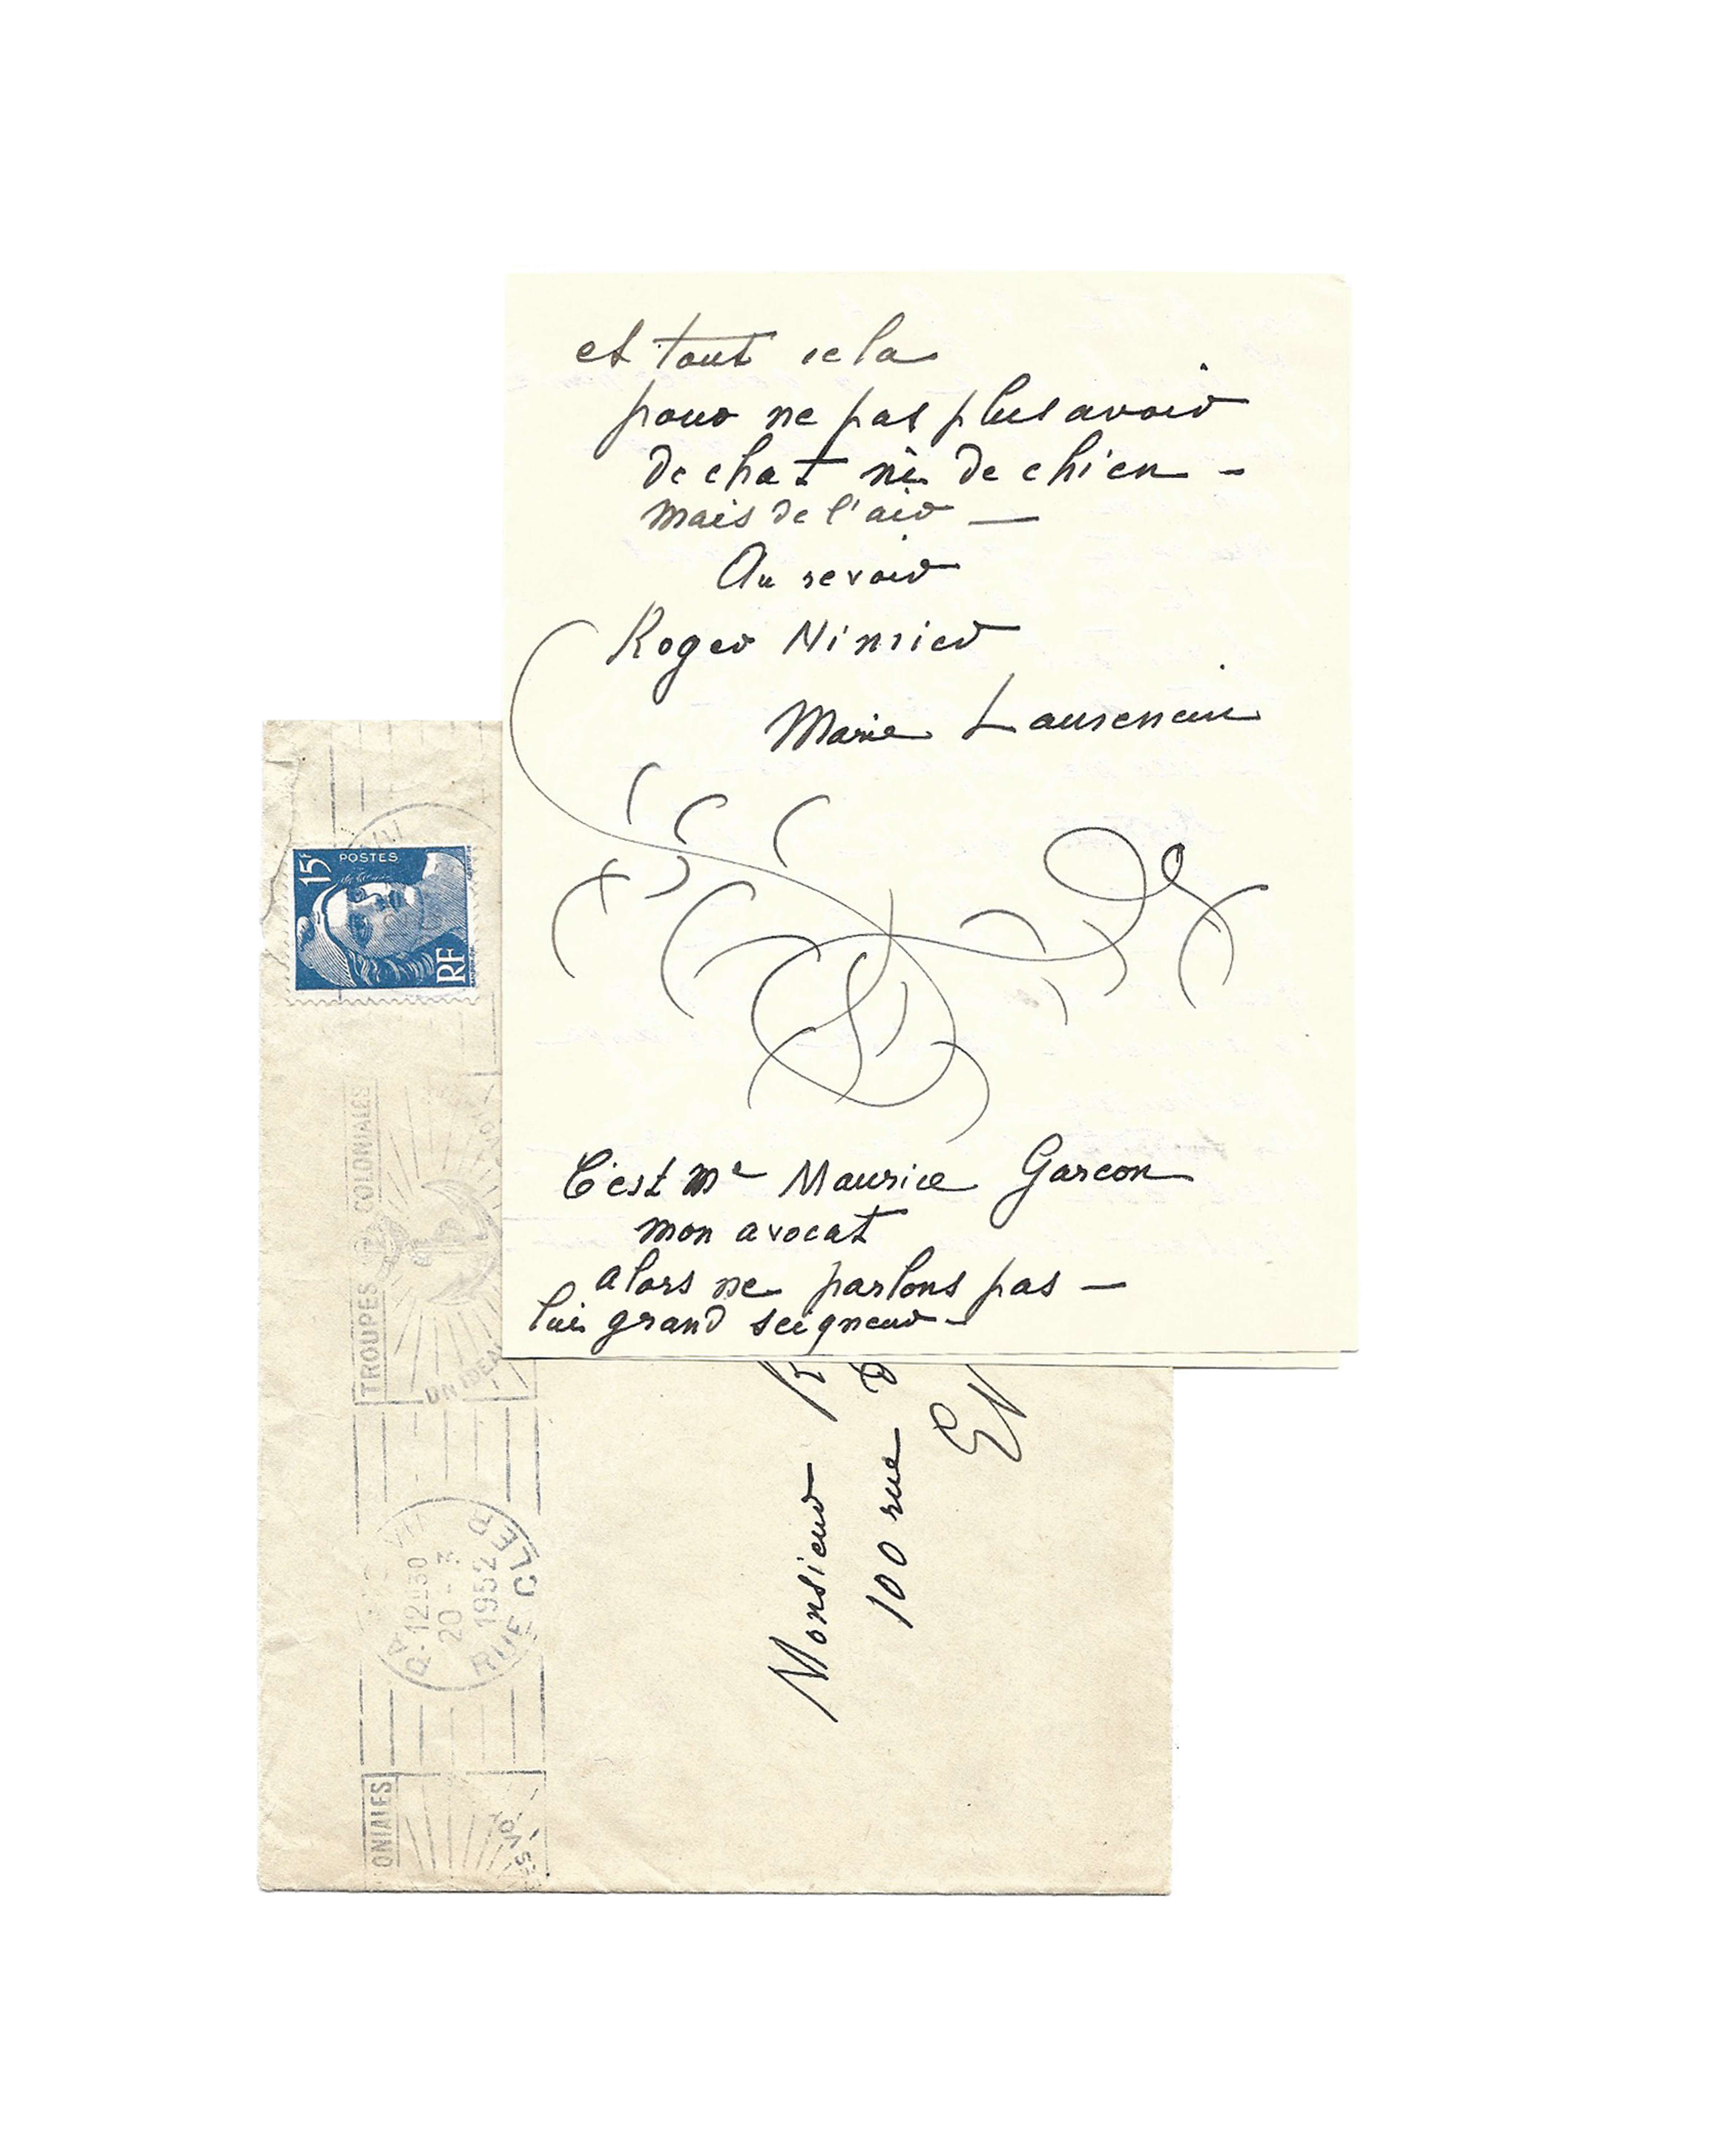 et tout cela
pour ne pas plus avoir
de chat ni de chien -
mais de l'air —
Au revoir
Roger
Marie Laurencin
C'est Me Maurice Garcon
mon avocat
alors ne parlons pas —
lui grand seigneur -
15F
POSTES
RF
TROUPES COLONIALES
UN IDEAL
12H30
20 - 3
1952
RUE CLER
ONIALES
Monsieur R
100 rue D